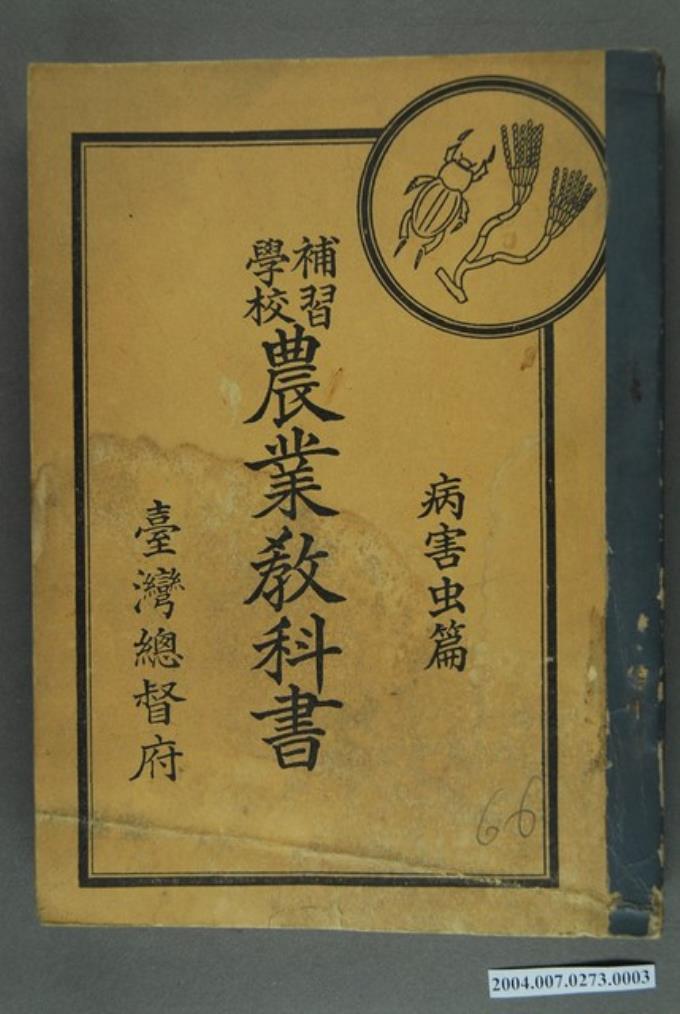 病害虫篇
補習
學校
農業教科書
臺灣總督府
66
2004.007.0273.0003